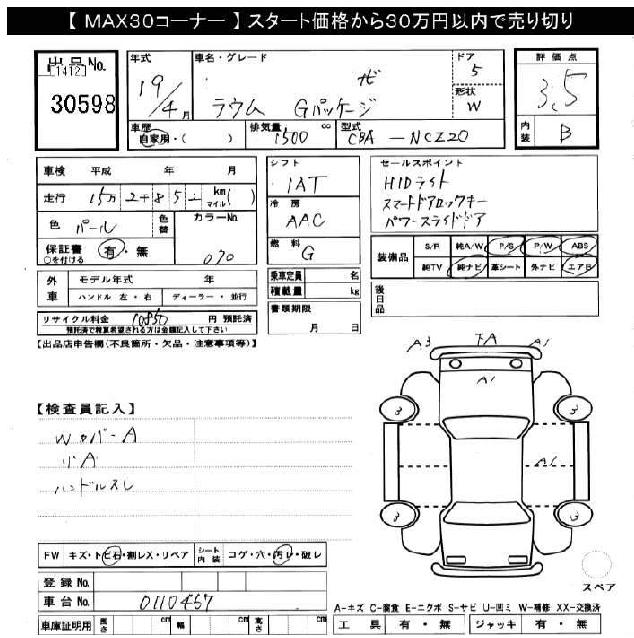 【 MAX30コーナー 】 スタート価格から30万円以内で売り切り
出品No.
1412
30598
年式
19/4月
車名・グレード
ラウム Gパッケージ
ドア
5
形状
W
評価点
3.5
内装
B
車歴
自家用・( )
排気量
1500 cc
型式
CBA-NCZ20
車検 平成 年 月
走行 15万2+85- km マイル( )
色 パール
色替
カラーNo
070
保証書
○を付ける
有・無
シフト
IAT
冷房
AAC
燃料
G
セールスポイント
HIDライト
スマートドアロックキー
パワースライドドア
装備品
S/F 純A/W P/S P/W ABS
純TV 純ナビ 革シート 外ナビ エアB
外車
モデル年式 年
ハンドル 左・右 ディーラー・並行
乗車定員 名
積載量 kg
後日品
リサイクル料金 10850 円 預託済
預託済で精算希望される方は金額記入して下さい
書類期限
月 日
【出品店申告欄(不良箇所・欠品・注意事項等)】
【検査員記入】
Wロバ-A
リA
ハンドルスレ
A3 FA A1
A1
A1
3 3
3 3
スペア
FW キズ・トビ石・割レス・リペア
シート内装
コゲ・穴・汚レ・破レ
登録No.
車台No. 0110457
車庫証明用 長さ cm 幅 cm 高さ cm
A-キズ C-腐食 E-エクボ S-サビ U-凹ミ W-補修 XX-交換済
工具 有・無 ジャッキ 有・無